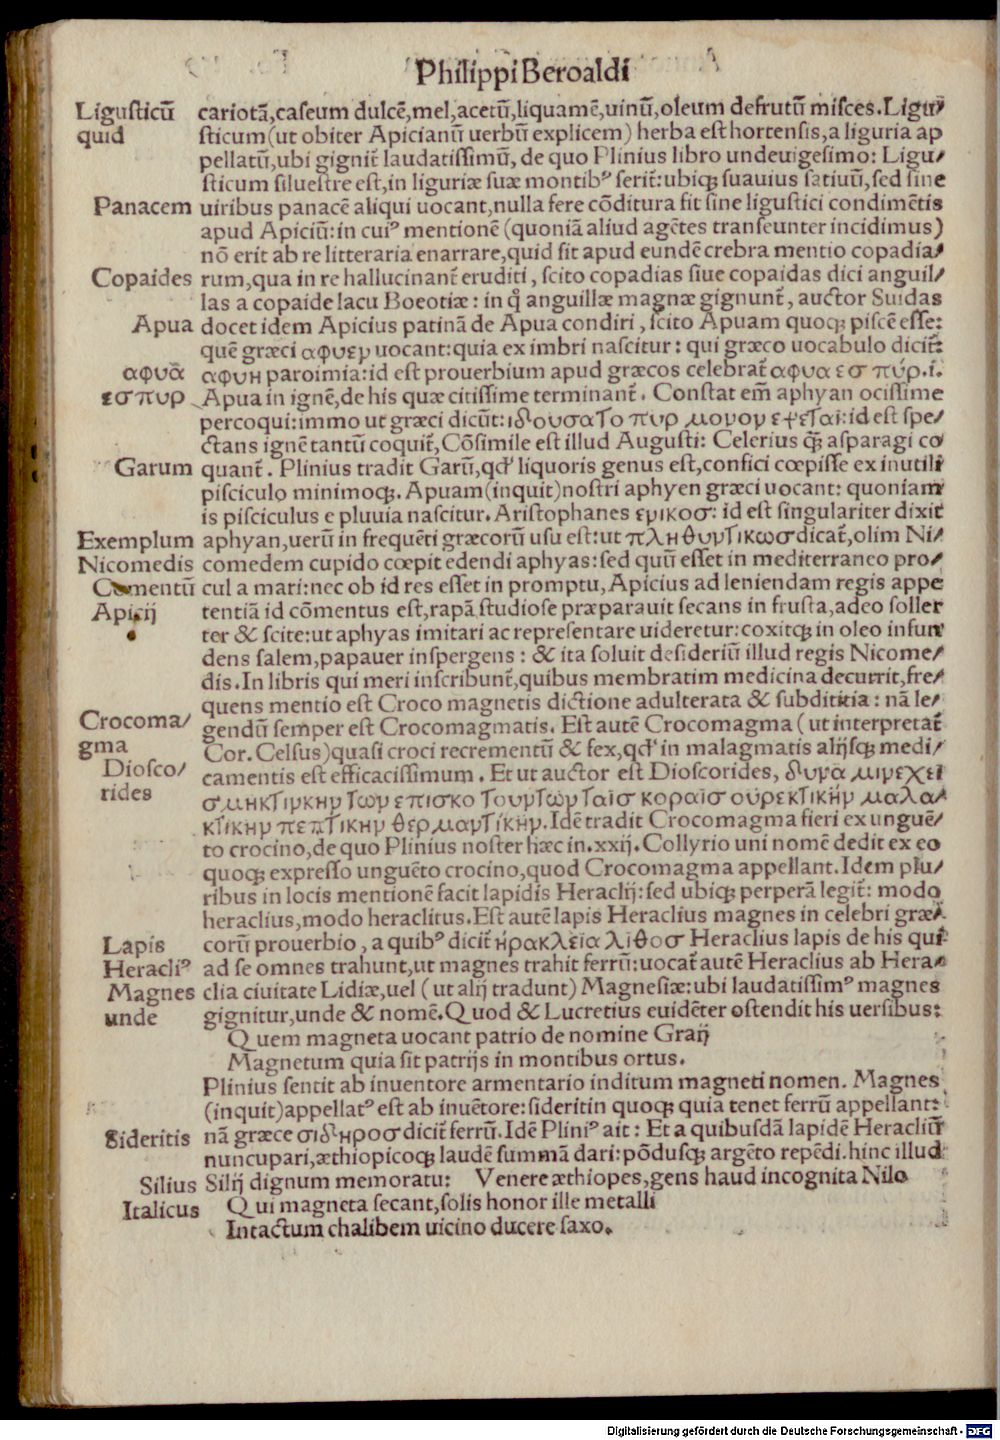 Philippi Beroaldi
Ligusticū cariotā,caseum dulcē,mel,acetū,liquamē,uinū,oleum defrutū misces.Ligu/
quid sticum(ut obiter Apicianū uerbū explicem) herba est hortensis,a liguria ap
pellatū,ubi gignit̃ laudatissimū, de quo Plinius libro undeuigesimo: Ligu/
sticum siluestre est,in liguriæ suæ montibꝰ serit̃:ubiqꝫ suauius satiuū,sed sine
Panacem uiribus panacē aliqui uocant,nulla fere cōditura fit sine ligustici condimētis
apud Apiciū: in cuiꝰ mentionē (quoniā aliud agētes transeunter incidimus)
nō erit ab re litteraria enarrare,quid sit apud eundē crebra mentio copadia/
Copaides rum,qua in re hallucinant̃ eruditi, scito copadias siue copaidas dici anguil/
las a copaide lacu Boeotiæ: in q̊ anguillæ magnæ gignunt̃, auctor Suidas
Apua docet idem Apicius patinā de Apua condiri, scito Apuam quoqꝫ piscē esse:
quē græci αφυεν uocant:quia ex imbri nascitur: qui græco uocabulo dicit̃:
αφυᾶ αφυη paroimia:id est prouerbium apud græcos celebrat̃ αφυα εσ πύρ.i.
εσπυρ Apua in ignē,de his quæ citissime terminant̃. Constat em̄ aphyan ocissime
percoqui:immo ut græci dicūt:ιδουσα το πυρ μονον εψεται:id est spe/
ctans ignē tantū coquit̃,Cōsimile est illud Augusti: Celerius q̄ꝫ asparagi co
Garum quant̃. Plinius tradit Garū,qd' liquoris genus est,confici cœpisse ex inutili
pisciculo minimoqꝫ.Apuam(inquit)nostri aphyen græci uocant: quoniam
is pisciculus e pluuia nascitur.Aristophanes ενικοσ: id est singulariter dixit
Exemplum aphyan,uerū in frequēti græcorū usu est:ut πληθυντικωσ dicat̃,olim Ni/
Nicomedis comedem cupido cœpit edendi aphyas:sed quū esset in mediterraneo pro/
Cōmentū cul a mari:nec ob id res esset in promptu,Apicius ad leniendam regis appe
Apicij tentiā id cōmentus est,rapā studiose præparauit secans in frusta,adeo soller
ter & scite:ut aphyas imitari ac representare uideretur:coxitqꝫ in oleo infun
dens salem,papauer inspergens: & ita soluit desideriū illud regis Nicome/
dis.In libris qui meri inscribunt̃,quibus membratim medicina decurrit,fre/
quens mentio est Croco magnetis dictione adulterata & subdititia: nā le/
Crocoma/ gendū semper est Crocomagmatis. Est autē Crocomagma (ut interpretat̃
gma Cor. Celsus)quasi croci recrementū & fex,qd' in malagmatis alijsqꝫ medi/
Diosco/ camentis est efficacissimum. Et ut auctor est Dioscorides, δυνα μινεχει
rides σμηκτινκην των επισκο τουντων ταισ κοραισ ουρεκτικὴν μαλα
κτικην πεπτικην θερμαντίκην.Idē tradit Crocomagma fieri ex unguē/
to crocino,de quo Plinius noster hæc in.xxij. Collyrio uni nomē dedit ex eo
quoqꝫ expresso unguēto crocino,quod Crocomagma appellant.Idem plu/
ribus in locis mentionē facit lapidis Heraclij:sed ubiqꝫ perperā legit̃: modo
heraclius,modo heraclitus.Est autē lapis Heraclius magnes in celebri græ/
Lapis corū prouerbio, a quibꝰ dicit̃ ἡρακλεῖα λίθοσ Heraclius lapis de his qui
Heracliꝰ ad se omnes trahunt,ut magnes trahit ferrū:uocat̃ autē Heraclius ab Hera/
Magnes clia ciuitate Lidiæ,uel (ut alij tradunt) Magnesiæ:ubi laudatissimꝰ magnes
unde gignitur,unde & nomē.Quod & Lucretius euidēter ostendit his uersibus:
Quem magneta uocant patrio de nomine Graij
Magnetum quia sit patrijs in montibus ortus.
Plinius sentit ab inuentore armentario inditum magneti nomen. Magnes
(inquit)appellatꝰ est ab inuētore:sideritin quoqꝫ quia tenet ferrū appellant:
Sideritis nā græce σιδηροσ dicit̃ ferrū.Idē Pliniꝰ ait: Et a quibusdā lapidē Heracliū
nuncupari,æthiopicoqꝫ laudē summā dari:pōdusqꝫ argēto repēdi.hinc illud
Silius Silij dignum memoratu: Venere æthiopes,gens haud incognita Nilo
Italicus Qui magneta secant,solis honor ille metalli
Intactum chalibem uicino ducere saxo.
Digitalisierung gefördert durch die Deutsche Forschungsgemeinschaft - DFG